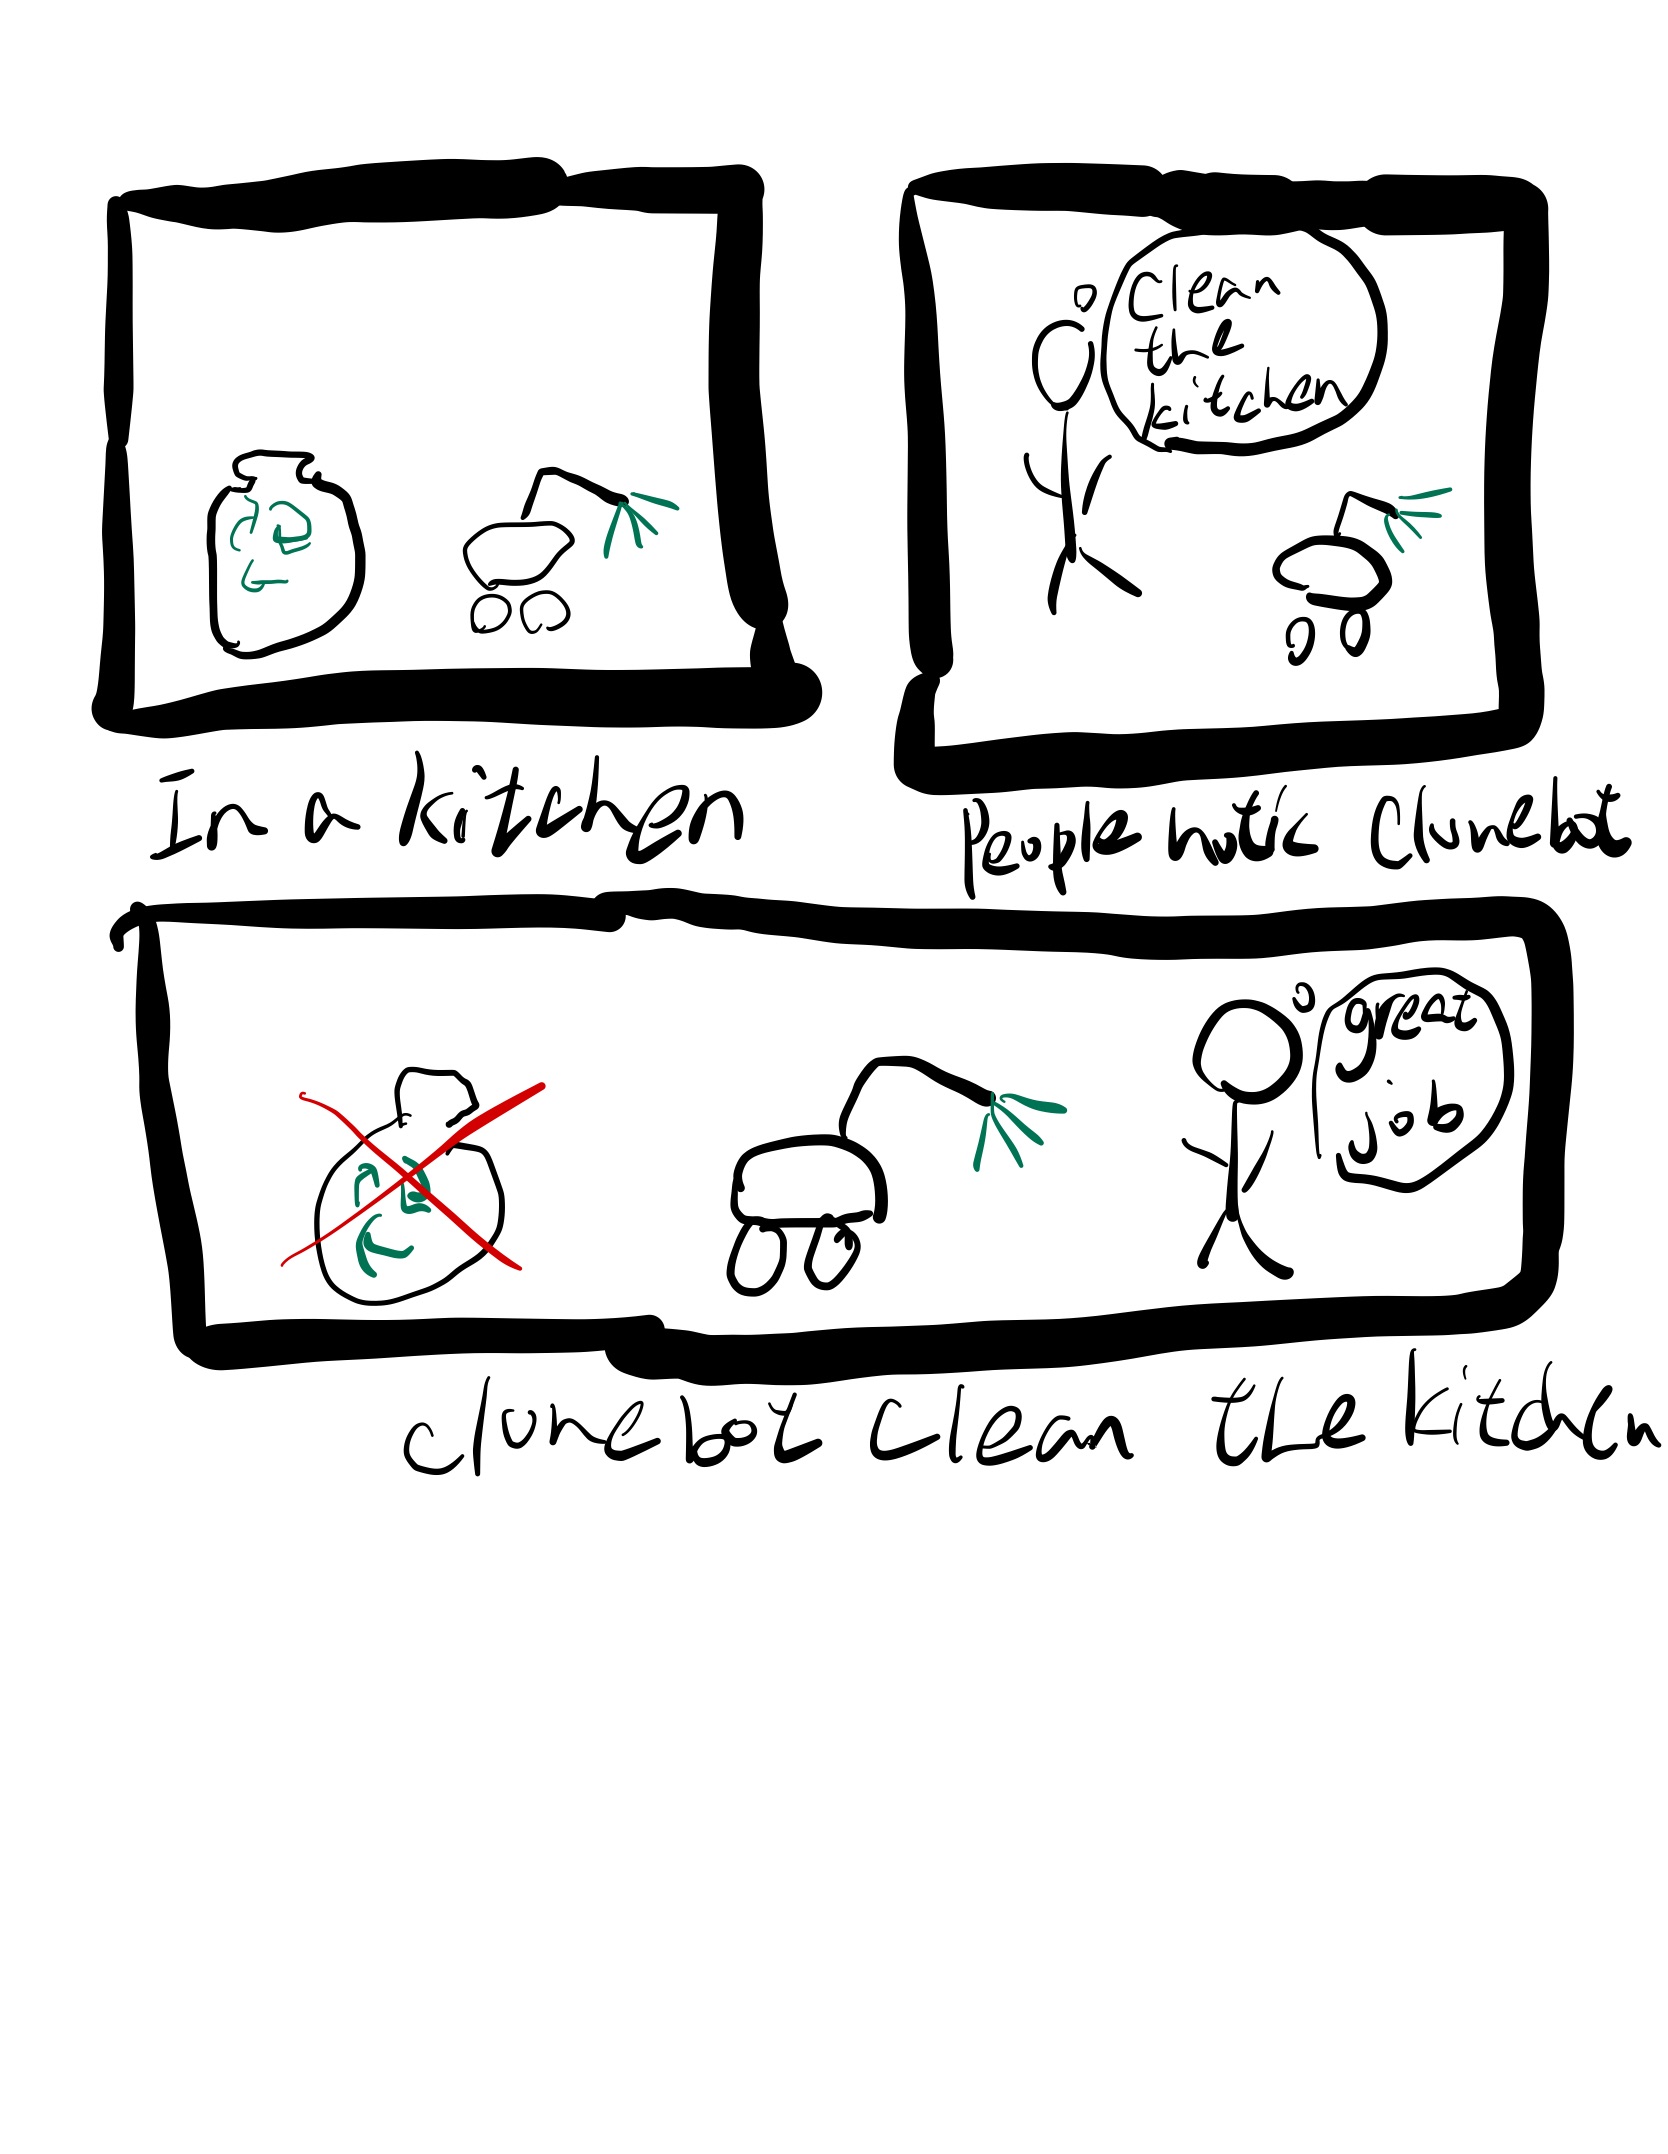 Clean
the
kitchen
In a kitchen
People notic Clunebot
great
job
clunebot clean the kitchen